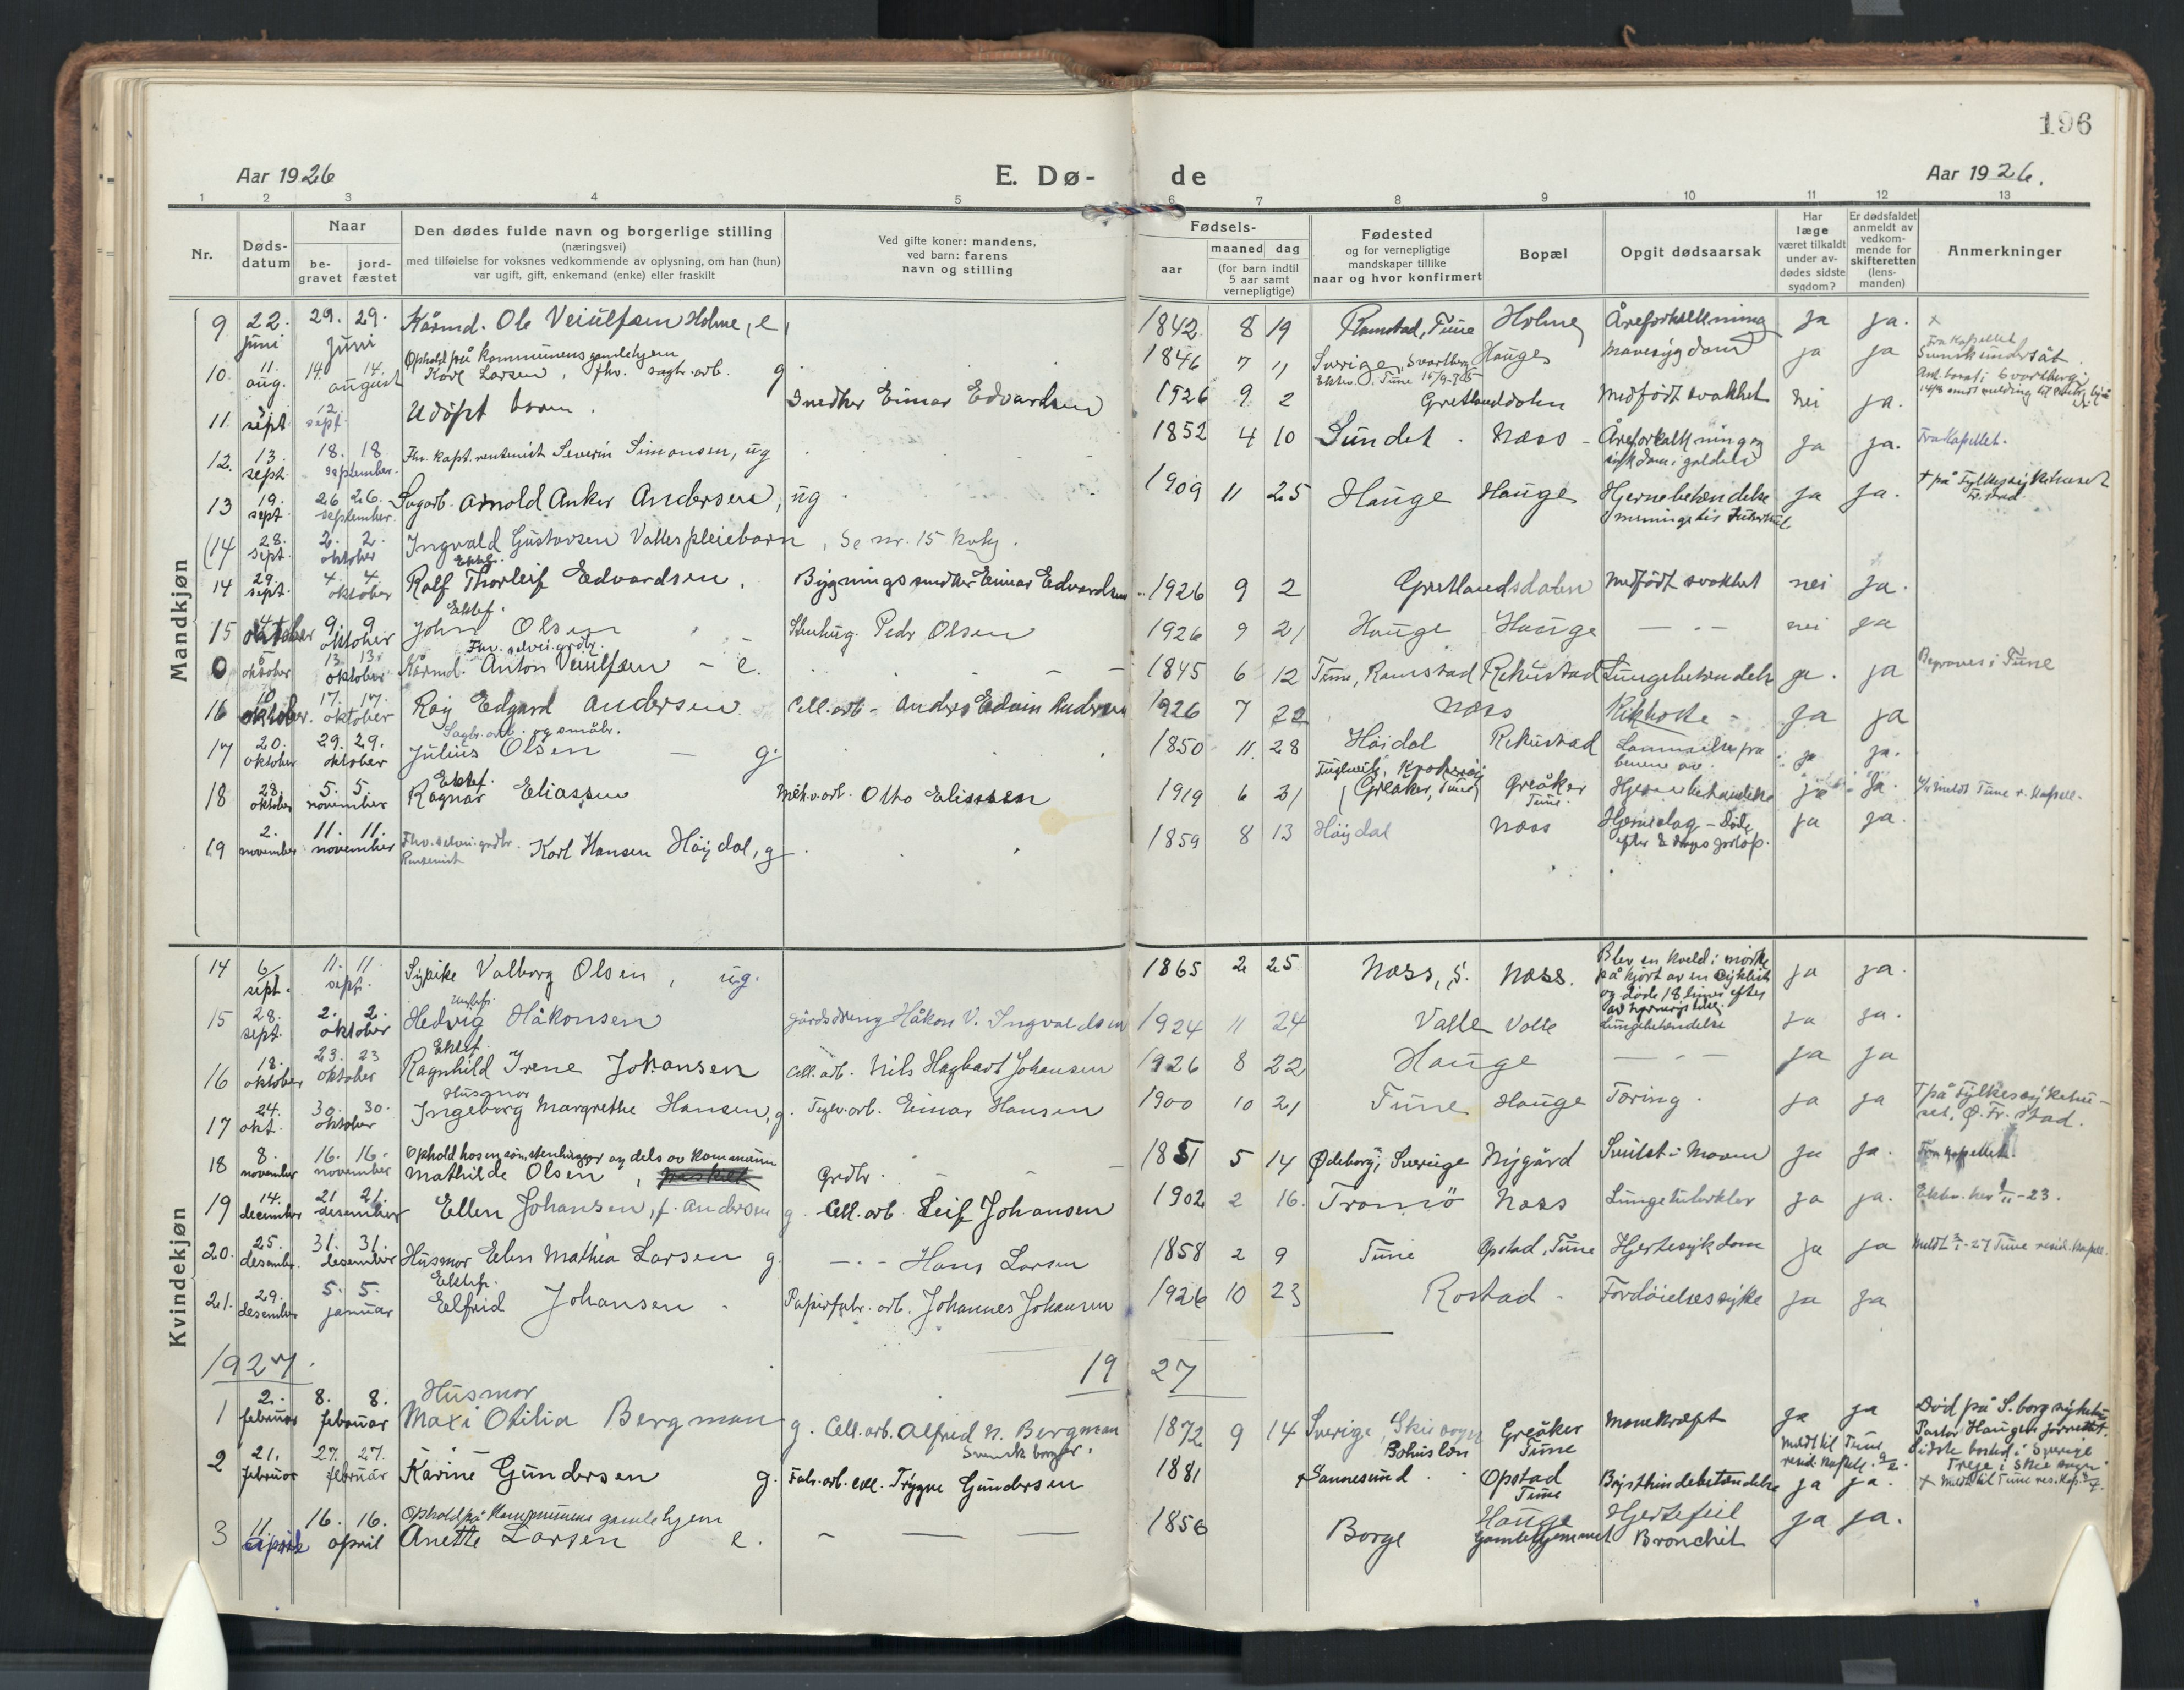 196
Aar 1926 E. Dø- de Aar 1926.
1 2 3 4 5 6 7 8 9 10 11 12 13
Nr.
Døds-
datum
Naar
be-
gravet
jord-
fæstet
Den dødes fulde navn og borgerlige stilling
(næringsvei)
med tilføielse for voksnes vedkommende av oplysning, om han (hun)
var ugift, gift, enkemand (enke) eller fraskilt
Ved gifte koner: mandens,
ved barn: farens
navn og stilling
Fødsels-
aar
maaned dag
(for barn indtil
5 aar samt
vernepligtige)
Fødested
og for vernepligtige
mandskaper tillike
naar og hvor konfirmert
Bopæl
Opgit dødsaarsak
Har
læge
været tilkaldt
under av-
dødes sidste
sygdom?
Er dødsfaldet
anmeldt av
vedkom-
mende for
skifteretten
(lens-
manden)
Anmerkninger
Mandkjøn
9 22. juni 29. 29. juni Kårmd. Ole Veiulfsen Holme, e, 1842 8 19 Ramstad, Tune Holme Åreforkalkning ja ja.
10. 11. aug. 14. 14. august Ophold på kommunens gamlehjem Karl Larsen, fhv. sagbr. arb. g 1846 7 11 Sverige, Svartberg Hauge Mavesygdom ja ja Fra kapellet Svensk undersåt.
11. sept 12. sept. Udöpt barn. Snedker Einar Edvardsen 1926 9 2 Gretlanddalen Medfödt svakhet nei ja.
12. 13. sept. 18. 18 september. Fhv. kapt. rentenist Severin Simonsen, ug 1852 4 10 Sundet. Næss - Åreforkalkning og sykdom i galden ja ja. Fra kapellet.
13 19. sept. 26 26. september. Sagarb. Arnold Anker Andersen, ug. 1909 11 25 Hauge Hauge Hjernebetændelse ja ja. † på Fylkessykehuset Fr.stad.
(14 28. sept. 2. 2. oktober Ingvald Gustavsen Valles pleiebarn, Se nr. 15 kvkj.
14 29. sept. 4. 4. oktober Ektef. Ralf Thorleif Edvardsen. Bygningssnedker Einar Edvardsen 1926 9 2 Gretlandsdalen Medfödt svakhet nei ja.
15 4. oktober 9. 9 oktober Ektef. John Olsen Stenhug. Peder Olsen 1926 9 21 Hauge Hauge — " — nei ja
0 5 oktober 13 13. oktober Fhv. selvei. grdbr. Kårmd. Anton Veiulfsen - e. 1845 6 12 Tune, Ramstad Rekustad Lungebetændelse ja. ja Begraves i Tune
16 10 oktober. 17. 17. oktober Roy Edgard Andersen Cell. arb. - Anders Edvin Andersen 1926 7 22 Næss Kikhoste - ja ja
17 20. oktober 29. 29. oktober Sagbr. arb. og småbr. Julius Olsen — g. 1850 11. 28 Höidal Rekustad Lammelse fra benene av. ja ja.
18 28. oktober 5. 5. november Ektef. Ragnar Eliassen Mek. v. arb. Otto Eliassen 1919 6 31 Greåker, Tune Greåker Tune. Hjernebetændelse ja ja.
19 2. november 11. 11. november Fhv. selvei. grdbr. Rentenist Karl Hansen Höydal, g 1859 8 13 Höydal Næss Hjerneslag - döde efter 2 dages forlöp. ja ja.
Kvindekjøn
14 6/ sept. 11. 11. sept. Sypike Valborg Olsen, ug. 1865 2 25 Næss, S. Næss. Blev en kveld i mörke påkjört av en cyklist og döde 18 timer efter av hjernerystelse. ja ja.
15 28. sept. 2. 2. oktober Hedvig Håkonsen Gårdsdreng Håkon V. Ingvaldsen 1924 11 24 Valle Valle Lungebetændelse ja ja.
16 18. oktober 23. 23 oktober Ektef. Ragnhild Irene Johansen Cell. arb. Nils Hagbart Johansen 1926 8 22 Hauge — " — ja ja
17 24. okt. 30. 30. oktober Husmor Ingeborg Margrethe Hansen, g. Teglv. arb. Einar Hansen 1900 10 21 Tune Hauge Tæring. ja ja † på Fylkessykehuset, Ö. Fr. stad.
18 8. november 16. 16. november Ophold hos en sön, stenhugger og dels av kommunen Mathilde Olsen, Grdbr. 1851 5 14 Ödeborg, Sverige Nygård Svulst i Maven ja ja. Fra kapellet.
19 14. december 21 21. desember Ellen Johansen, f. Andersen g. Cell. arb. Leif Johansen 1902 2 16. Tromö Næss Lungetuberkler ja ja.
20. 25. desember. 31. 31. desember Husmor Elen Mathia Larsen g. — " — Hans Larsen 1858 2 9 Tune Opstad, Tune Hjertesykdom ja ja
21. 29. desember 5. 5. januar Ektef. Elfrid Johansen - Papirfabr. arb. Johannes Johansen 1926 10 23 Rostad - Fordöielsessyke ja ja
1927. 19 27
1 2. februar 8. 8. februar Husmor Maxi Otilia Bergman g. Cell. arb. Alfred N. Bergman Svensk borger. 1872 9 14 Sverige, Skee sogn Bohuslen Greåker Tune Mavekræft ja ja Död på S.borg sykehus
2 21. februar 27. 27. februar Karine Gundersen g. Fabr. arb. cell. Trygve Gundersen 1881 Sannesund Opstad Tune Brysthindebetændelse ja ja.
3 11. april 16. 16. april Ophold på Kommunens gamlehjem Anette Larsen e. 1856 Borge Hauge Gamlehjemmet Hjertefeil Bronchit ja ja.